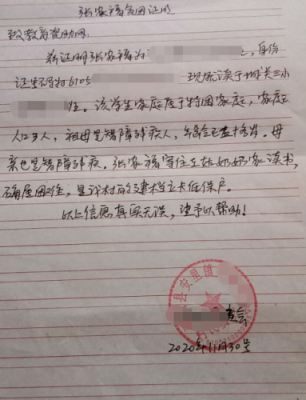 张家福贫困证明
致教育资助网
兹证明张家福为 身份
证号码为6105 现就读于
住。该学生家庭属于特困家庭，家庭
人口3人，祖母是智障残疾人，年龄已
亲也是智障残疾，张家福寄住在奶奶家读书，
确属困难，是 村的建档立卡低保户。
以上信息真实无误，望予以帮助！
县安里镇
委会
2020年11月30号